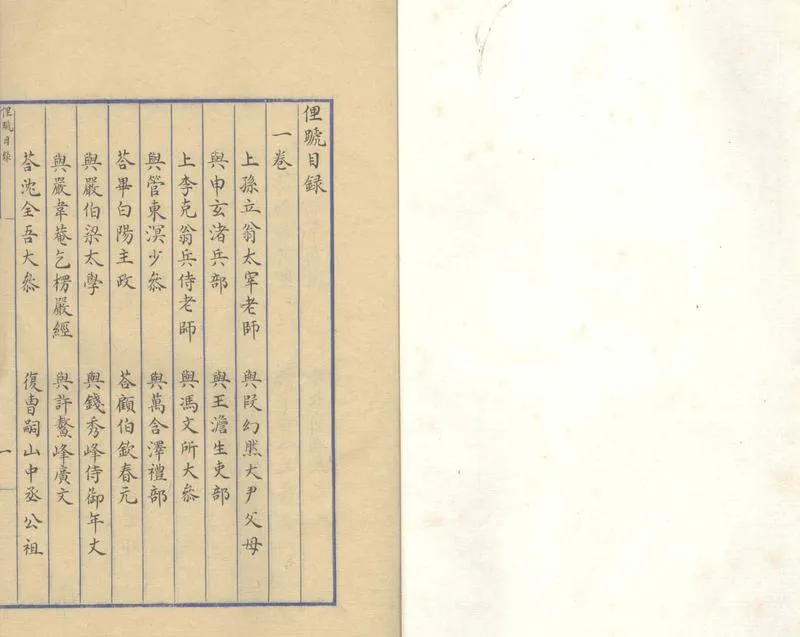 俚號目錄
一卷
上孫立翁太宰老師 與段幻然大尹父母
與申玄渚兵部 與王澹生吏部
上李克翁兵侍老師 與馮文所大叅
與管東溟少叅 與萬含澤禮部
荅畢白陽主政 荅顧伯欽春元
與嚴伯梁太學 與錢秀峰侍御年丈
與嚴韋菴乞楞嚴經 與許鰲峰廣文
荅沈全吾大叅 復曹嗣山中丞公祖
俚號目錄
一